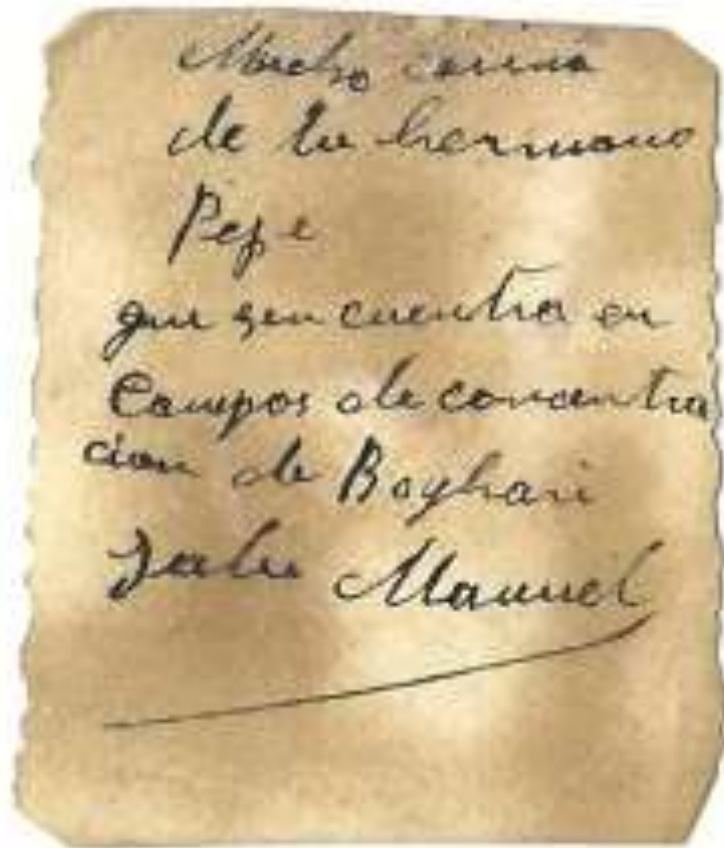 Mucho cariño
de tu hermano
Pepe
que sen cuentra en
Campos de concentra
cion de Boghari
Manuel